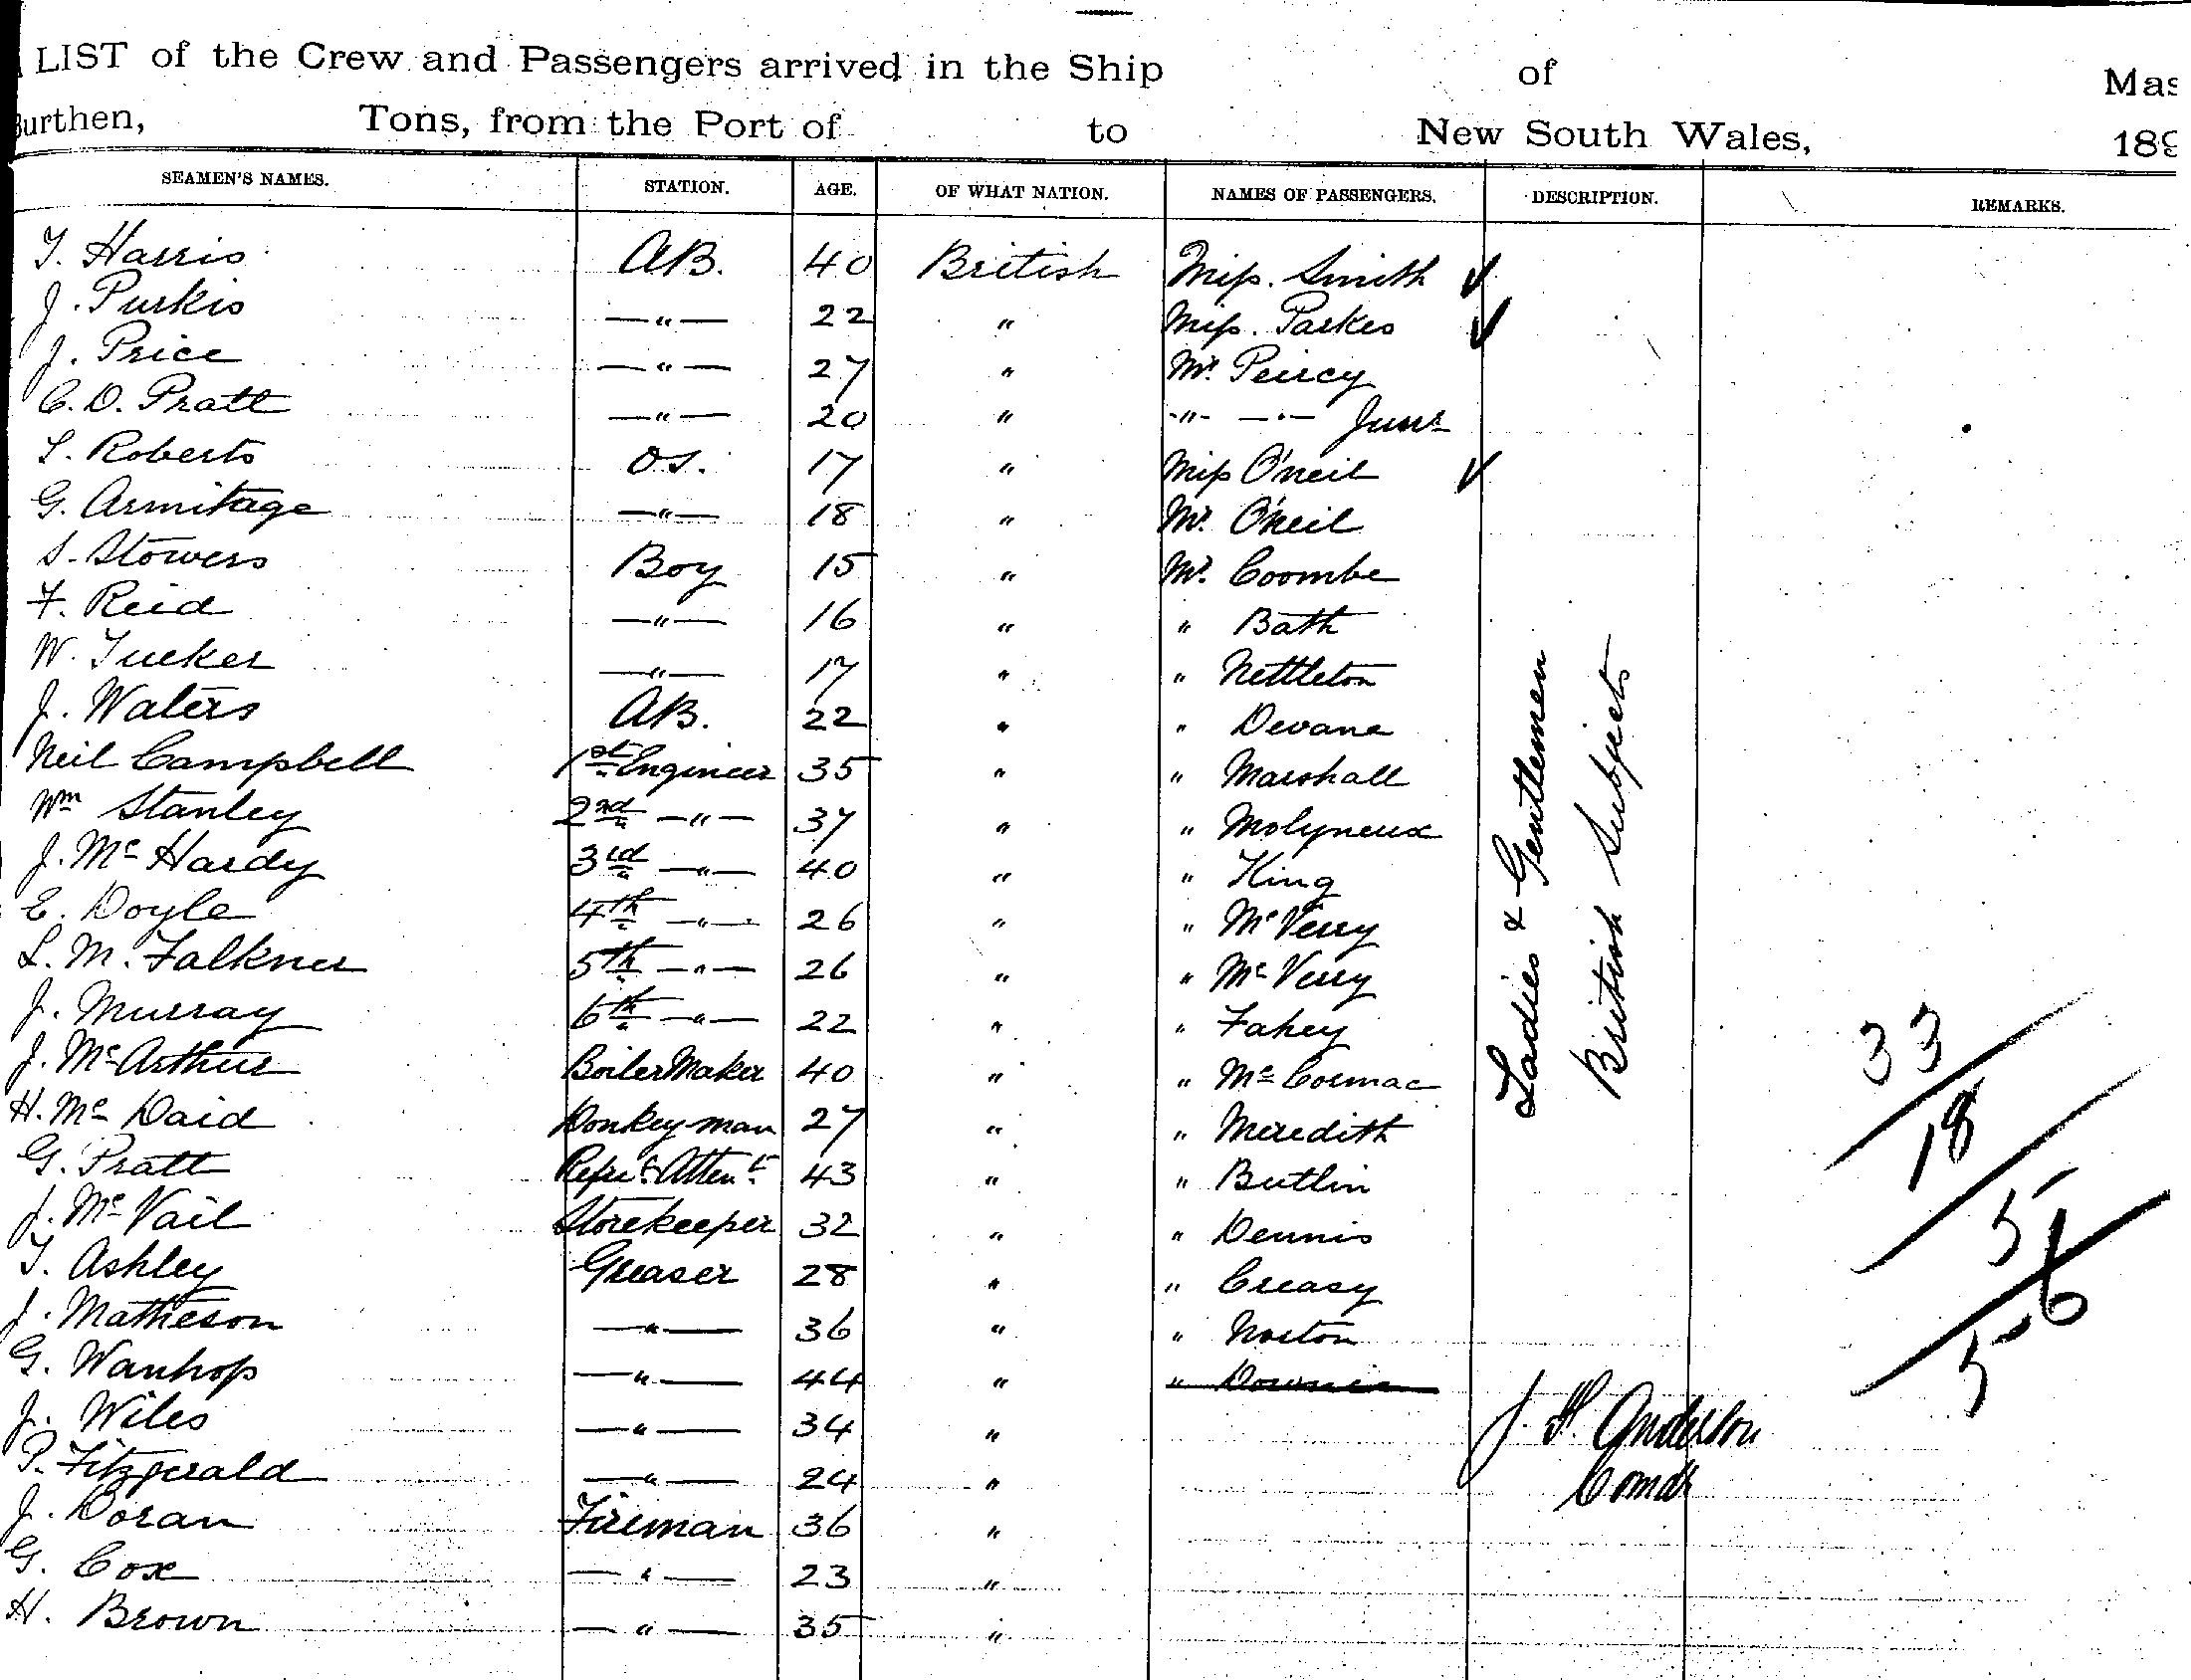 LIST of the Crew and Passengers arrived in the Ship of Mas
Burthen, Tons, from the Port of to New South Wales, 189
SEAMEN'S NAMES. STATION. AGE. OF WHAT NATION. NAMES OF PASSENGERS. DESCRIPTION. REMARKS.
T. Harris AB. 40 British Miss. Smith ✓
J. Purkis —"— 22 " Miss. Parkes ✓
J. Price —"— 27 " Mr. Peircy
C. D. Pratt —"— 20 " -"- —"— Junr
S. Roberts OS. 17 " Miss O'neil ✓
G. Armitage —"— 18 " Mr. O'neil
S. Stowers Boy 15 " Mr. Coombe
F. Reid —"— 16 " " Bath
W. Tucker —"— 17 " " Nettleton
J. Waters AB. 22 " " Devane
Neil Campbell 1st Engineer 35 " " Marshall
Wm Stanley 2nd —"— 37 " " Molyneux
J. Mc Hardy 3rd —"— 40 " " King
E. Doyle 4th —"— 26 " " McVerry
L. M. Falkner 5th —"— 26 " " McVerry
J. Murray 6th —"— 22 " " Fahey
J. McArthur Boiler Maker 40 " " McCormac
H. Mc Daid Donkeyman 27 " " Meredith
G. Pratt Refrr. Attent. 43 " " Butlin
J. McVail Storekeeper 32 " " Dennis
T. Ashley Greaser 28 " " Creasy
J. Matheson —"— 36 " " Norton
G. Wanhop —"— 44 " "
J. Wiles —"— 34 "
P. Fitzgerald —"— 24 "
J. Doran Fireman 36 "
G. Cox —"— 23 "
H. Brown —"— 35 "
Ladies & Gentlemen
British Subjects
33
18
5
56
J. H. Anderson
Comdr